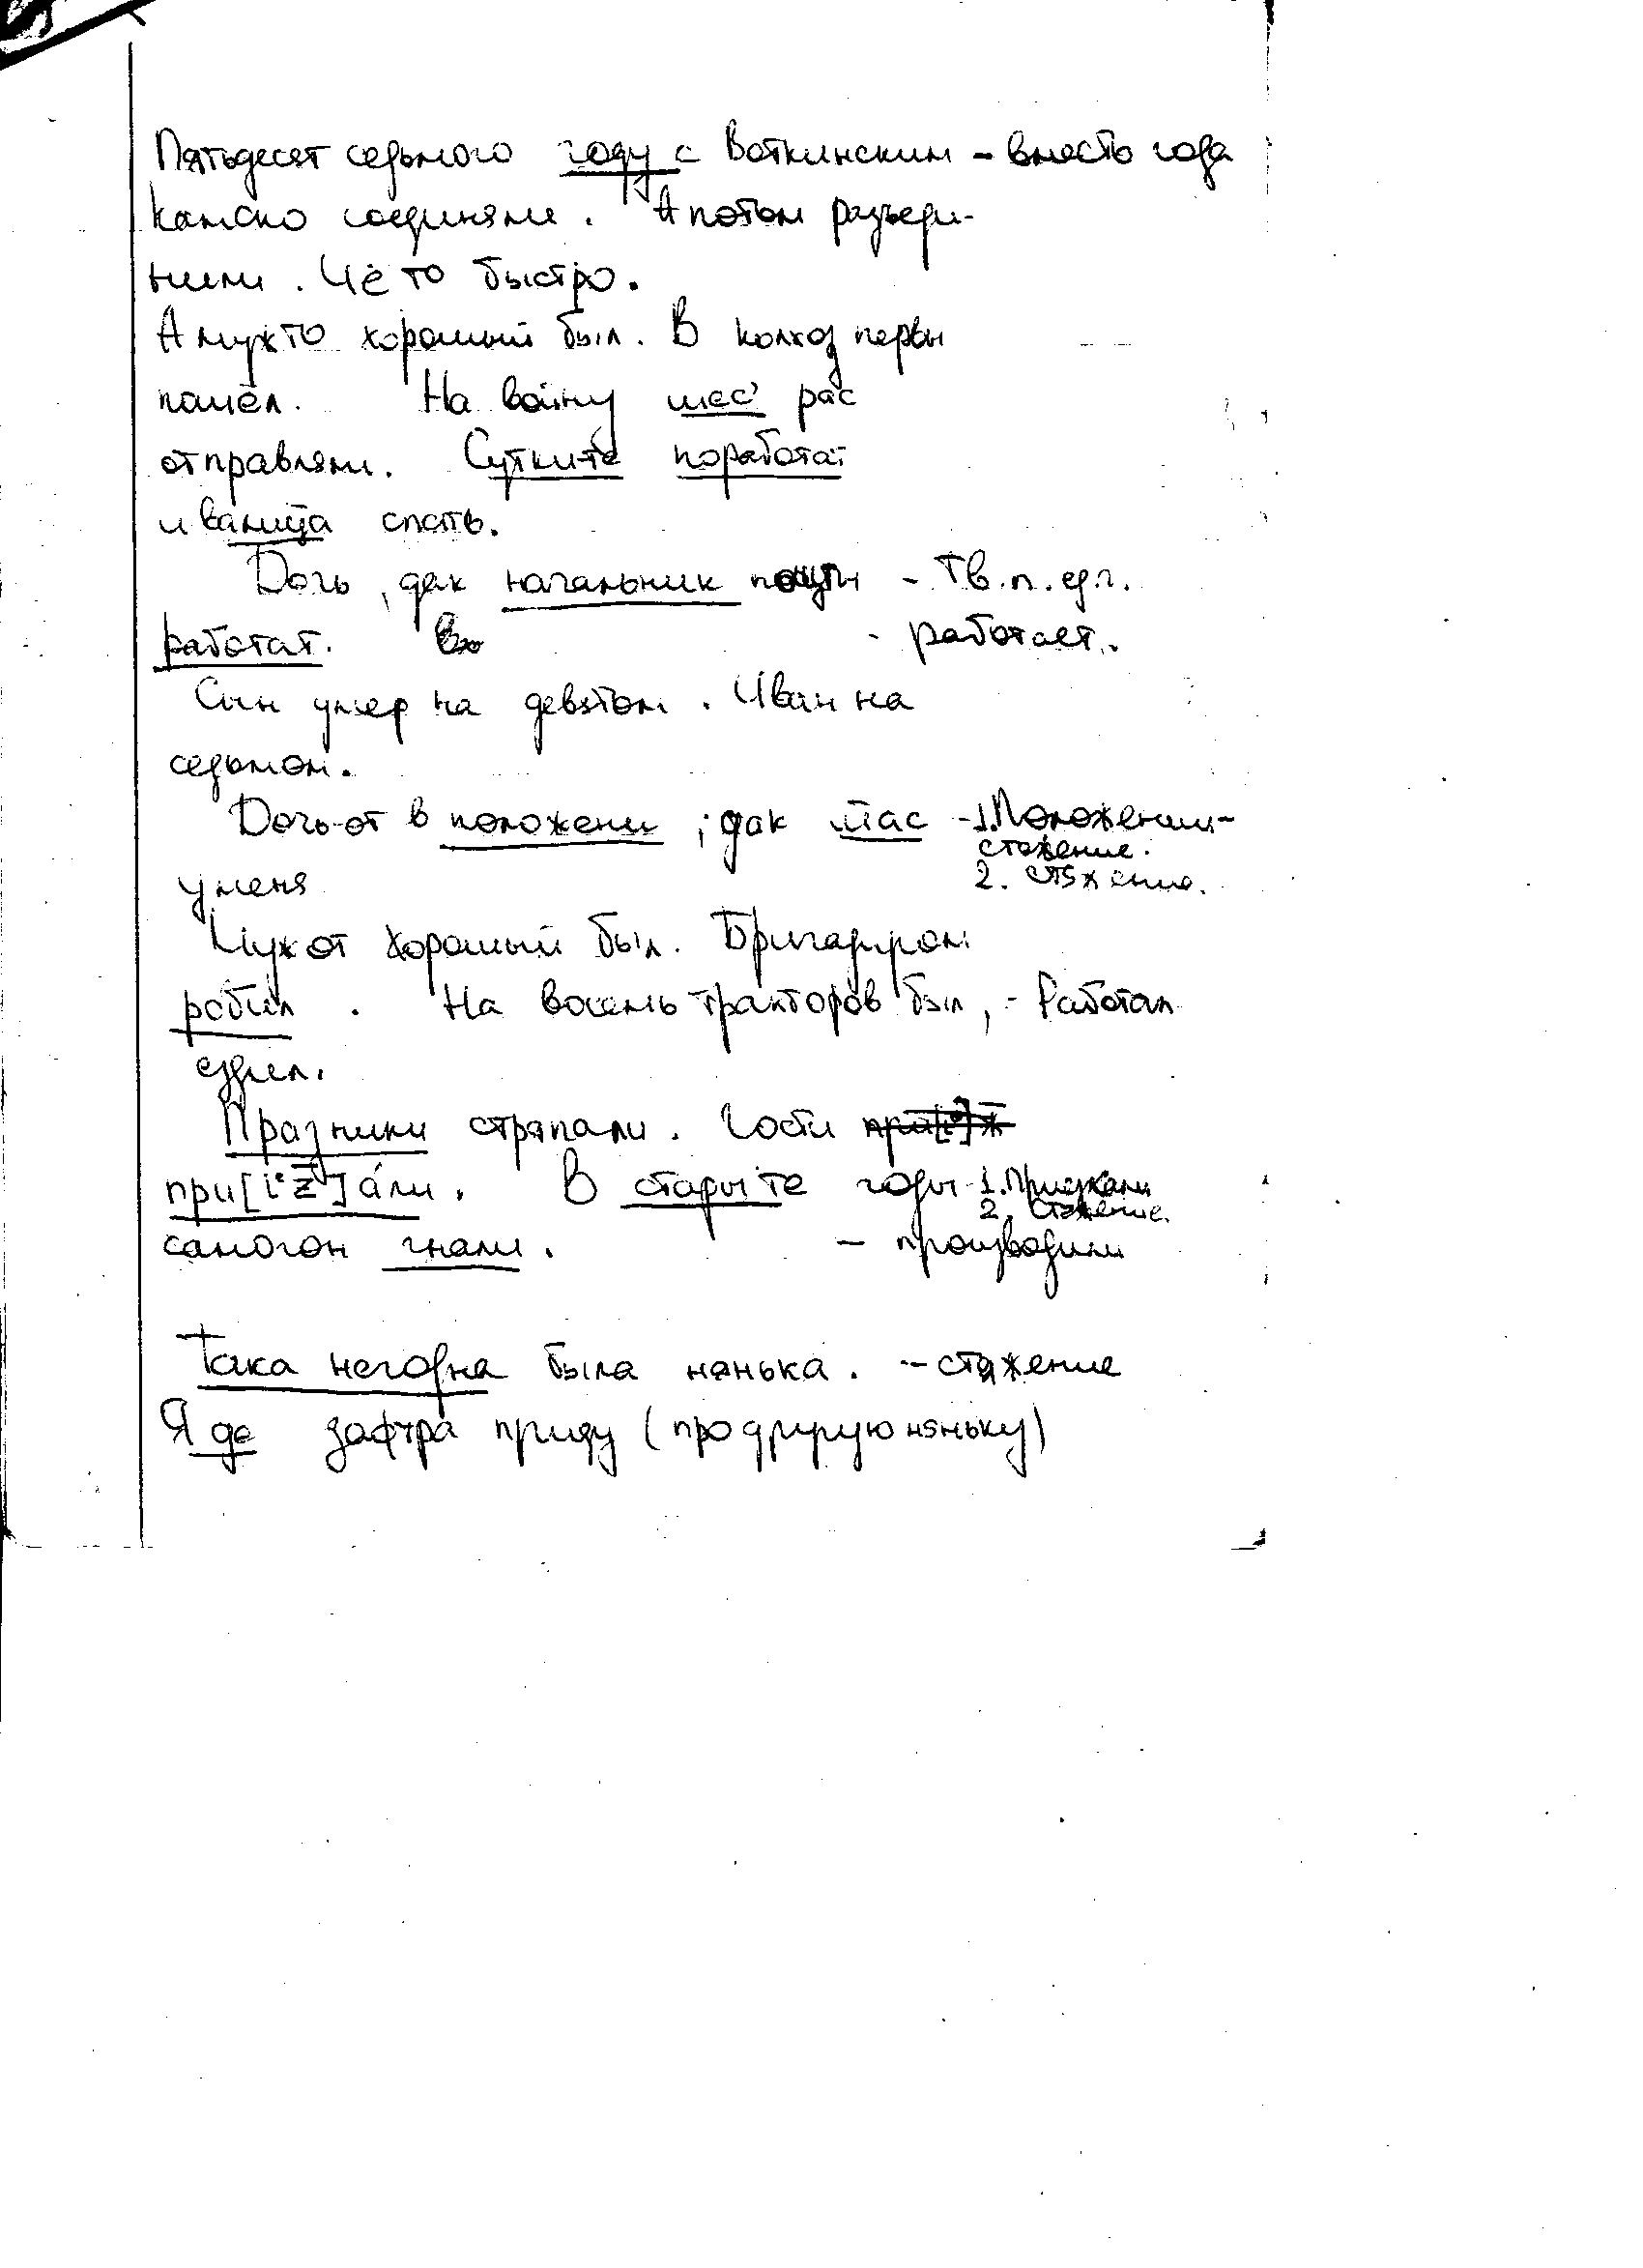 Пятьдесят седьмого году с Воткинским - вместо года
Камско соединяли. А потом разъеди-
нили. Чё то быстро.
А мужто хороший был. В колхоз первы
пошёл. На войну шес' рас
отправляли. Сутките поработат
и валица спать.
Дочь, дак начальник почты - Тв.п. ед.ч.
работат. - работает.
Сын умер на девятом. Иван на
седьмом.
Дочь-от в положени, дак щас - 1. Положении-
стяжение.
2. Стяжение.
у меня
Мужот хороший был. Бригадиром
робил. На восемь тракторов был, - Работал
ездил.
Празники стряпали. Гости
при[i°z̄]а́ли. В старыте годы - 1. Приезжали
2. Стяжение.
самогон гнали. - производили
Така негодна была нянька. - стяжение
Я де зафтра приду (про другую няньку)